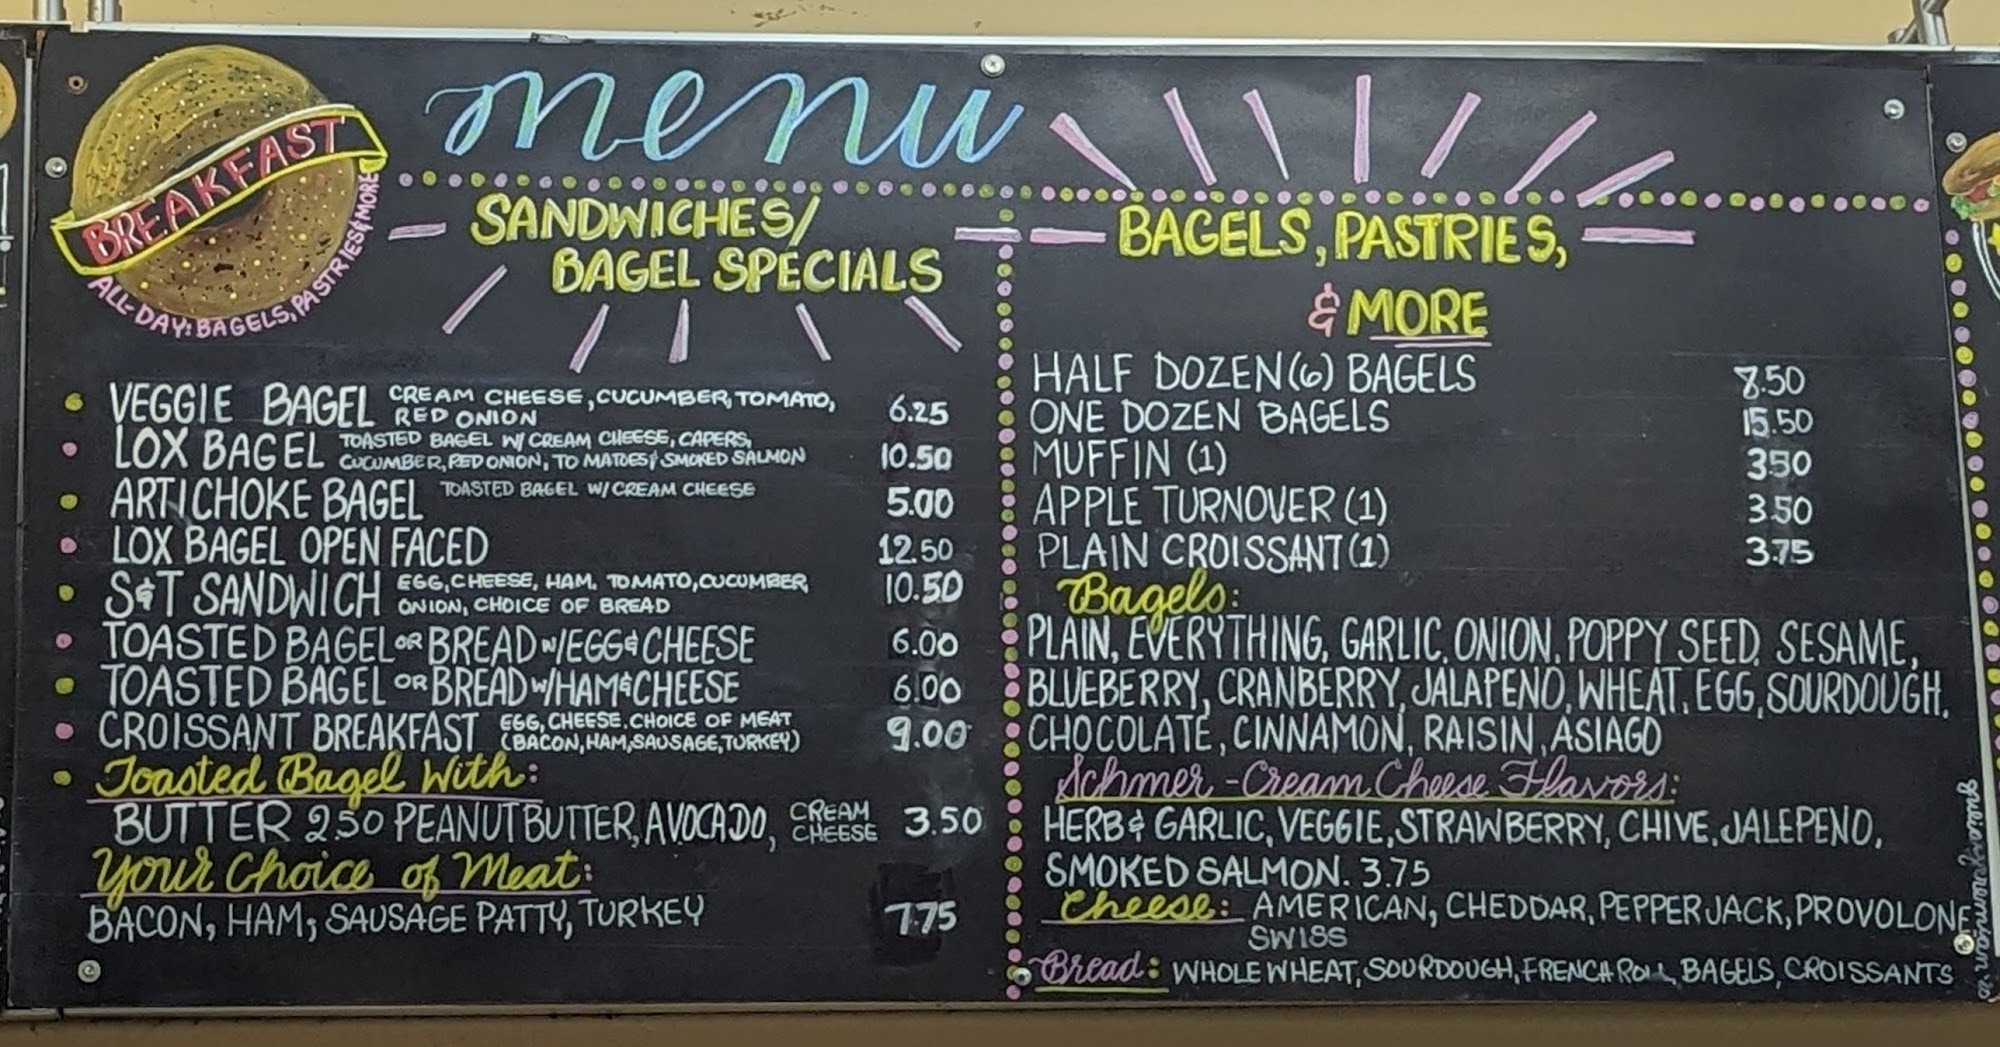 menu
BREAKFAST
ALL-DAY: BAGELS, PASTRIES & MORE
SANDWICHES/
BAGEL SPECIALS
VEGGIE BAGEL CREAM CHEESE, CUCUMBER, TOMATO, RED ONION 6.25
LOX BAGEL TOASTED BAGEL W/ CREAM CHEESE, CAPERS, CUCUMBER, RED ONION, TOMATOES & SMOKED SALMON 10.50
ARTICHOKE BAGEL TOASTED BAGEL W/ CREAM CHEESE 5.00
LOX BAGEL OPEN FACED 12.50
S&T SANDWICH EGG, CHEESE, HAM, TOMATO, CUCUMBER, ONION, CHOICE OF BREAD 10.50
TOASTED BAGEL OR BREAD W/EGG & CHEESE 6.00
TOASTED BAGEL OR BREAD W/HAM & CHEESE 6.00
CROISSANT BREAKFAST EGG, CHEESE, CHOICE OF MEAT (BACON, HAM, SAUSAGE, TURKEY) 9.00
Toasted Bagel With:
BUTTER 2.50 PEANUT BUTTER, AVOCADO, CREAM CHEESE 3.50
Your Choice of Meat:
BACON, HAM, SAUSAGE PATTY, TURKEY 7.75
BAGELS, PASTRIES,
& MORE
HALF DOZEN (6) BAGELS 8.50
ONE DOZEN BAGELS 15.50
MUFFIN (1) 3.50
APPLE TURNOVER (1) 3.50
PLAIN CROISSANT (1) 3.75
Bagels:
PLAIN, EVERYTHING, GARLIC, ONION, POPPY SEED, SESAME,
BLUEBERRY, CRANBERRY, JALAPENO, WHEAT, EGG, SOURDOUGH,
CHOCOLATE, CINNAMON, RAISIN, ASIAGO
Schmer - Cream Cheese Flavors:
HERB & GARLIC, VEGGIE, STRAWBERRY, CHIVE, JALEPENO,
SMOKED SALMON. 3.75
Cheese: AMERICAN, CHEDDAR, PEPPER JACK, PROVOLONE
SWISS
Bread: WHOLE WHEAT, SOURDOUGH, FRENCH ROLL, BAGELS, CROISSANTS